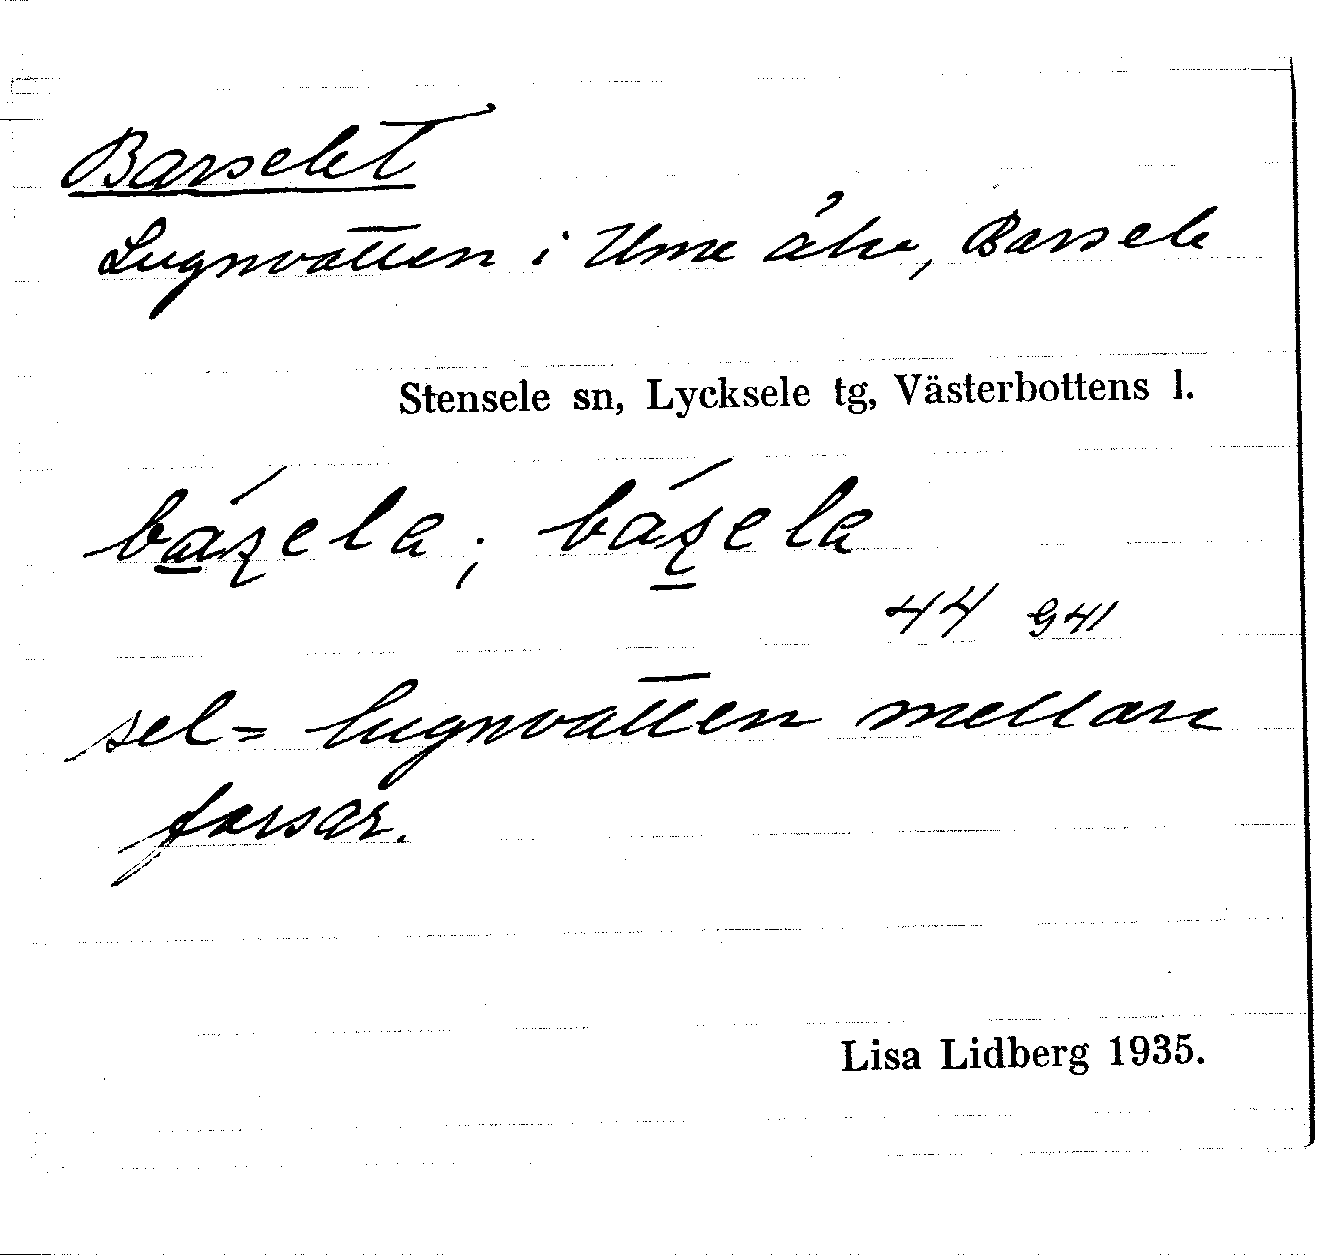 Barselet
Lugnvatten i Ume älv, Barsele
Stensele sn, Lycksele tg, Västerbottens l.
sel = lugnvatten mellan
forsar.
Lisa Lidberg 1935.